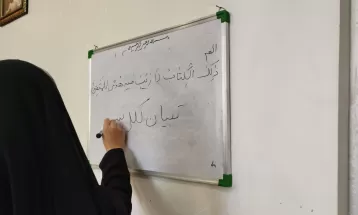 بسم الله الرحمن الرحیم
الم
ذلك الكتاب لا ريب فيه هدى للمتقين
تبيان لكل